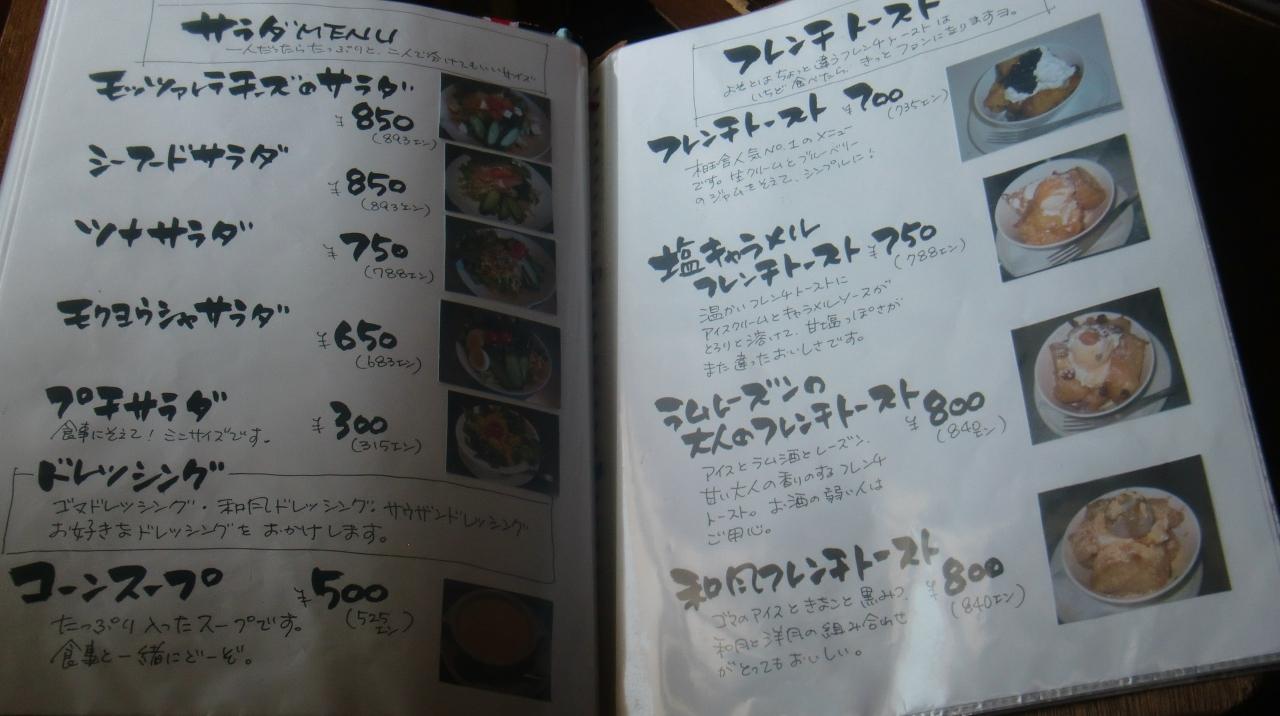 サラダMENU
一人だったらたっぷりと、二人で分けてもいいサイズ
モッツァレラチーズのサラダ
¥850
(893エン)
シーフードサラダ
¥850
(893エン)
ツナサラダ
¥750
(788エン)
モクヨウシャサラダ
¥650
(683エン)
プチサラダ
¥300
食事にそえて！ミニサイズです。
(315エン)
ドレッシング
ゴマドレッシング・和風ドレッシング・サウザンドレッシング
お好きなドレッシングをおかけします。
コーンスープ
¥500
(525エン)
たっぷり入ったスープです。
食事と一緒にどーぞ。
フレンチトースト
よそとはちょっと違うフレンチトーストは
いちど食べたら、きっとファンになりますヨ。
フレンチトースト ¥700
(735エン)
人気NO.1のメニュー
です。生クリームとブルーベリー
のジャムをそえて、シンプルに！
塩キャラメル
フレンチトースト ¥750
(788エン)
温かいフレンチトーストに
アイスクリームとキャラメルソースが
とろりと溶けて、甘塩っぽさが
また違ったおいしさです。
ラムレーズンの
大人のフレンチトースト ¥800
(840エン)
アイスとラム酒とレーズン、
甘い大人の香りのするフレンチ
トースト。お酒の弱い人は
ご用心。
和風フレンチトースト
¥800
(840エン)
ゴマのアイスときなこと黒みつ
和風と洋風の組み合わせ
がとってもおいしい。